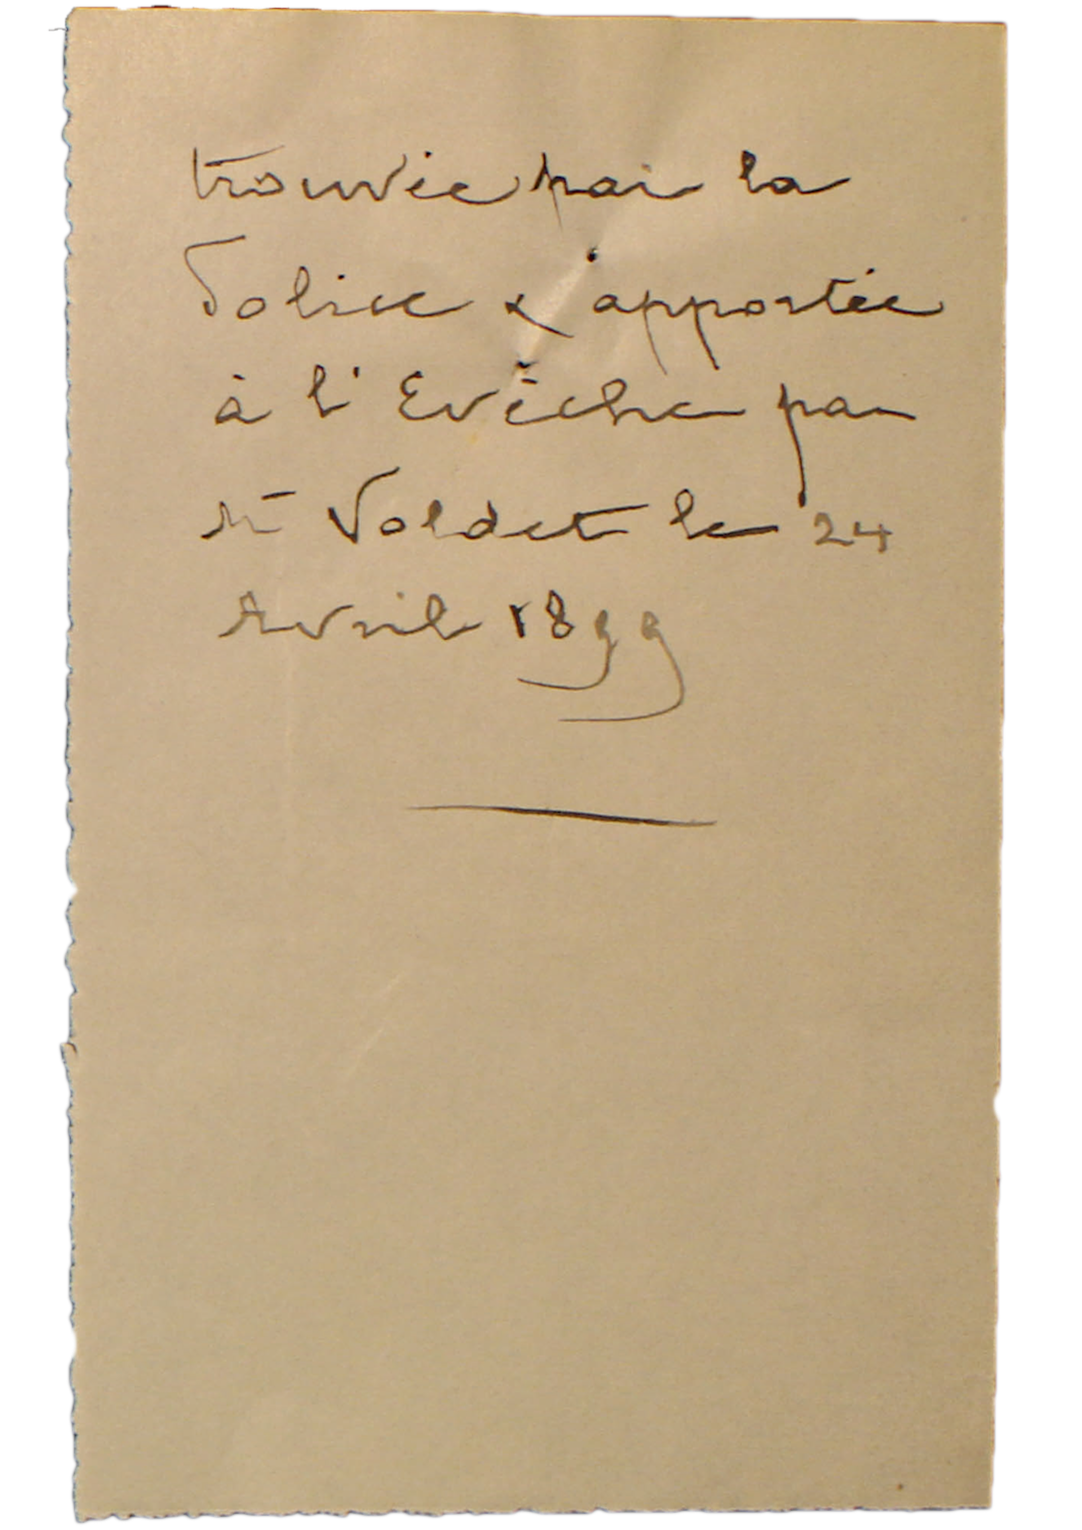 trouvée par la
Police & apportée
à l'Evêché par
Mr Voldet le 24
Avril 1899